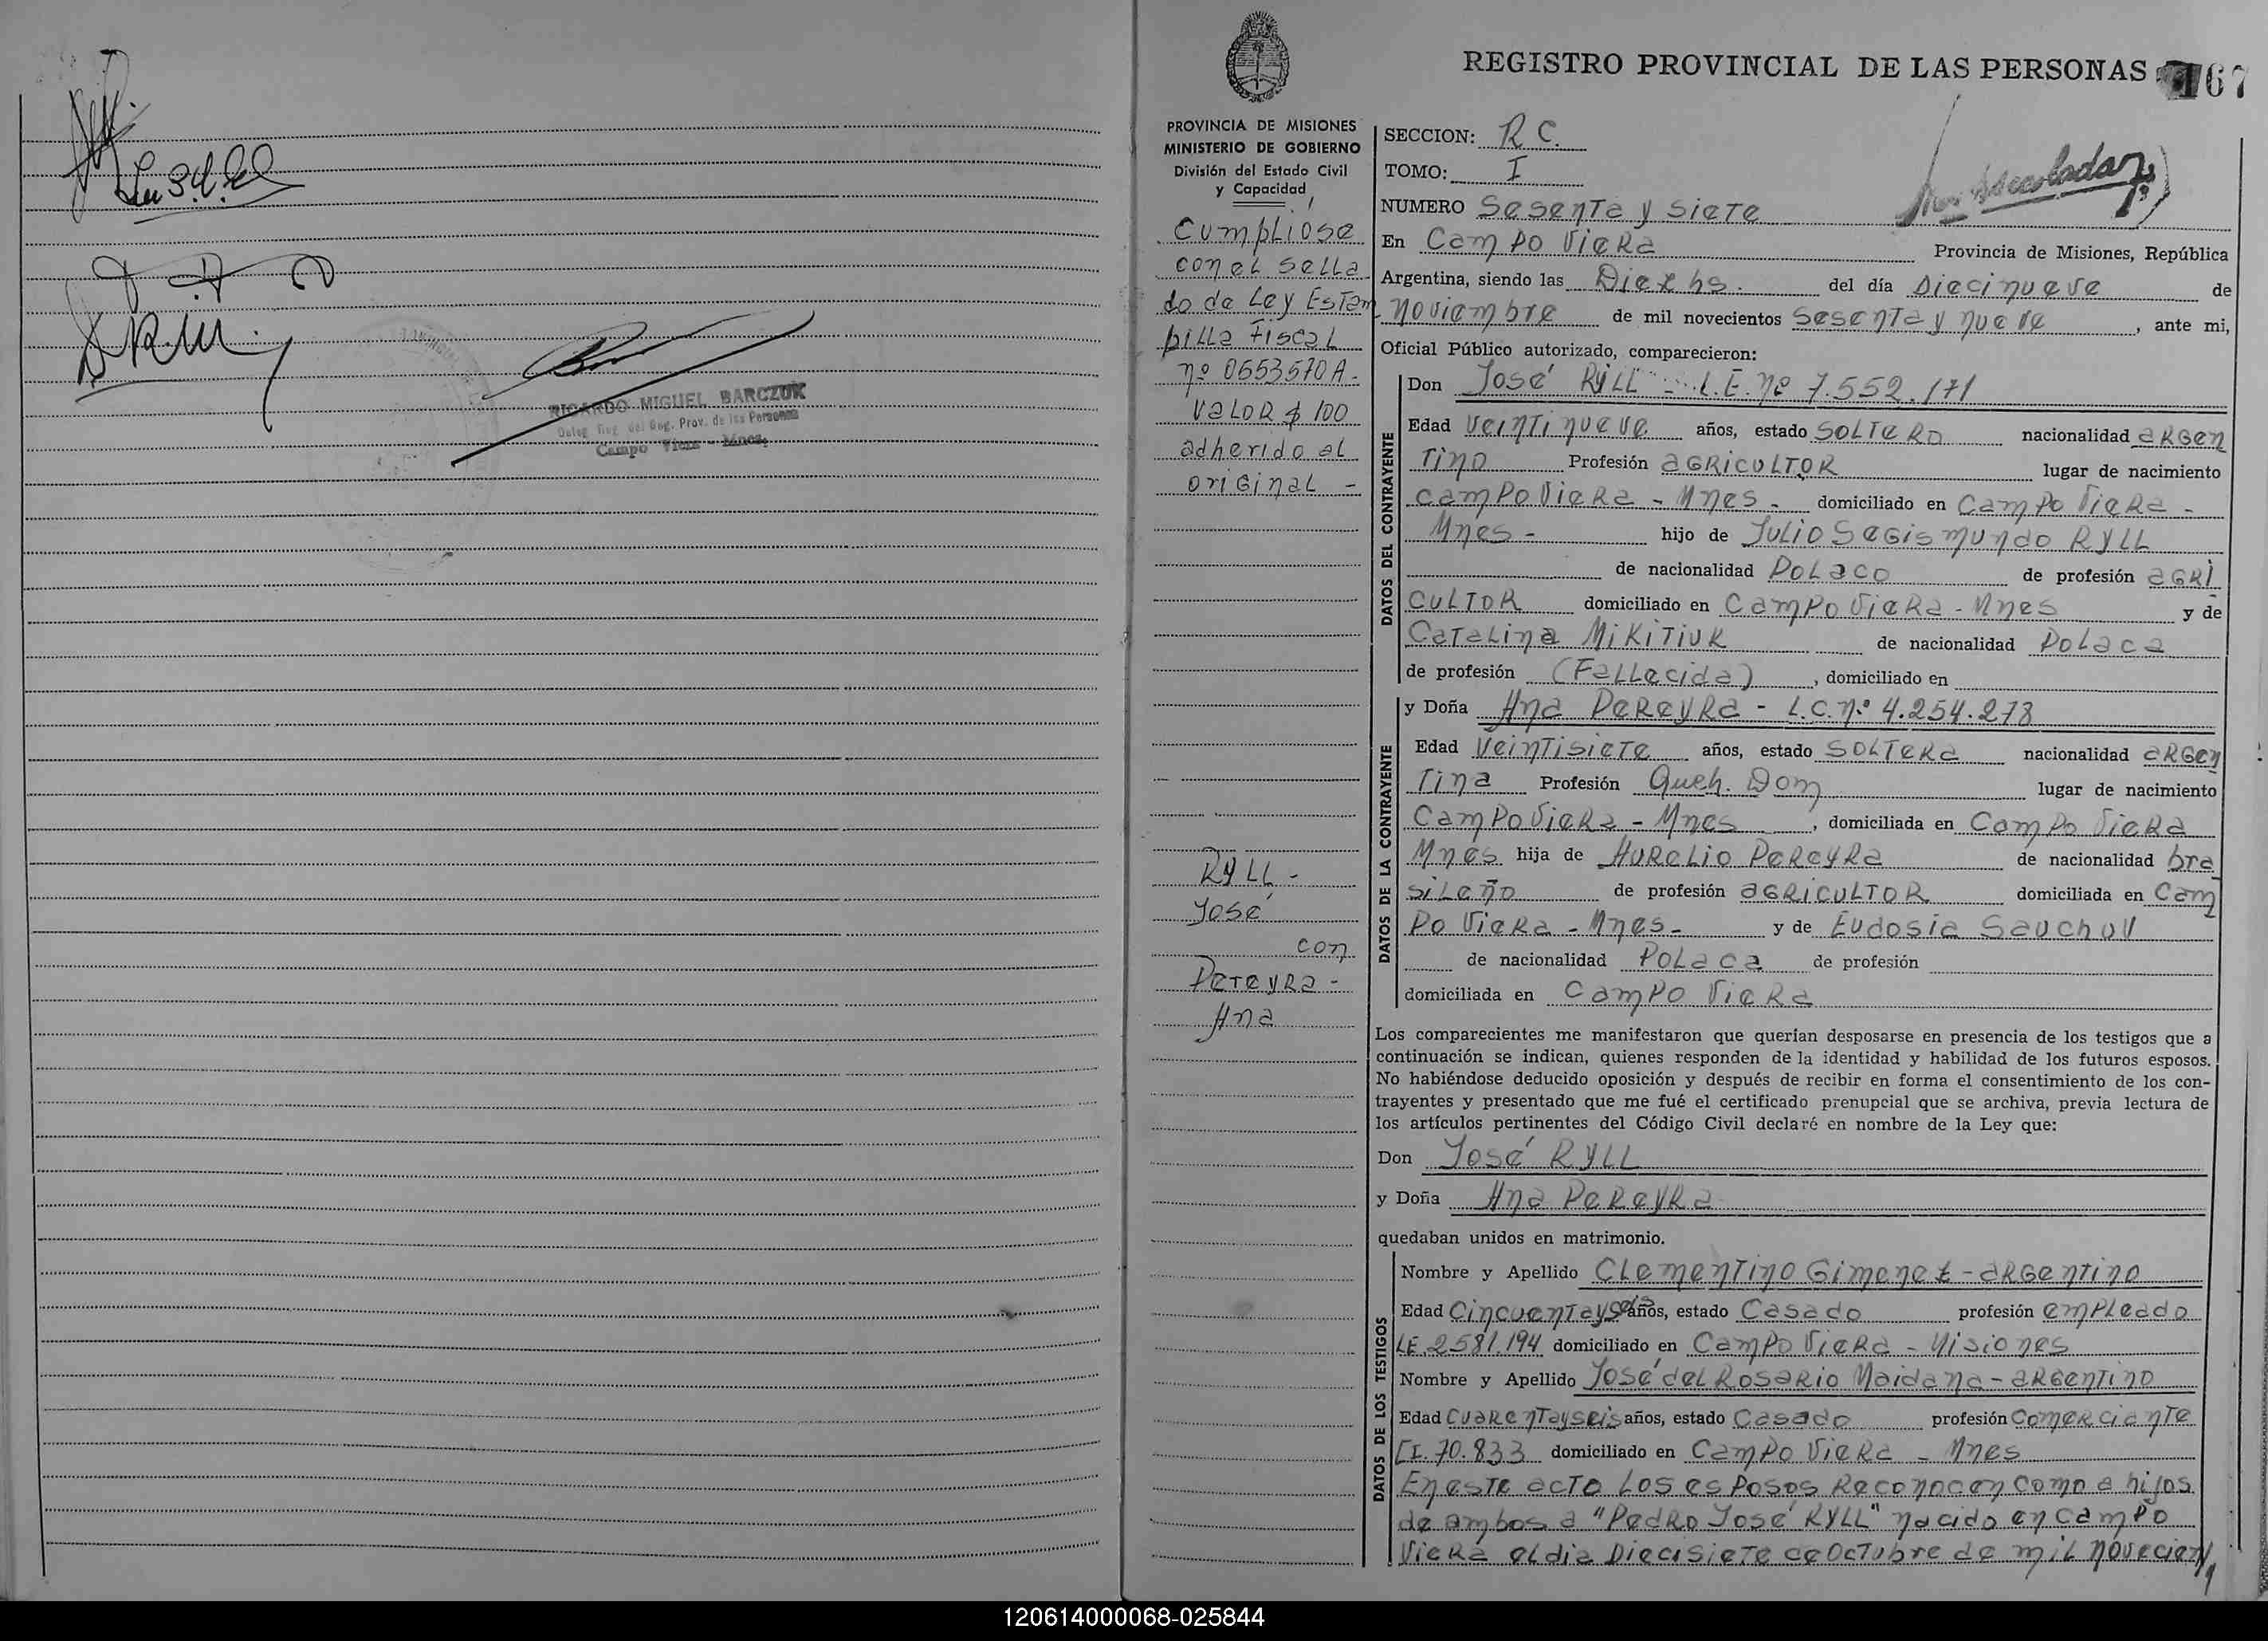 RICARDO MIGUEL BARCZUK
Deleg. Reg. del Reg. Prov. de las Personas
Campo Viera - Mnes.
REGISTRO PROVINCIAL DE LAS PERSONAS
67
PROVINCIA DE MISIONES
MINISTERIO DE GOBIERNO
División del Estado Civil
y Capacidad
Cumplióse
con el Sella
do de Ley Estam
pilla Fiscal
nº 0653570A-
Valor $ 100
adherido al
original -
RYLL -
José
con
Pereyra -
Ana
SECCION: R C.
TOMO: I
NUMERO Sesenta y siete
En Campo Viera Provincia de Misiones, República
Argentina, siendo las Diez hs. del día Diecinueve de
Noviembre de mil novecientos Sesenta y nueve, ante mi,
Oficial Público autorizado, comparecieron:
DATOS DEL CONTRAYENTE
Don José RYLL - L.E. nº 7.552.171
Edad Veintinueve años, estado SOLTERO nacionalidad argen
tino Profesión agricultor lugar de nacimiento
Campo Viera - Mnes - domiciliado en Campo Viera -
Mnes - hijo de Julio Segismundo RYLL
de nacionalidad Polaco de profesión agri
cultor domiciliado en Campo Viera - Mnes y de
Catalina Mikitiuk de nacionalidad Polaca
de profesión (Fallecida), domiciliado en
DATOS DE LA CONTRAYENTE
y Doña Ana Pereyra - L.C. n.º 4.254.278
Edad Veintisiete años, estado Soltera nacionalidad argen
tina Profesión Queh. Dom lugar de nacimiento
Campo Viera - Mnes, domiciliada en Campo Viera
Mnes hija de Aurelio Pereyra de nacionalidad bra
sileño de profesión agricultor domiciliada en Cam
po Viera - Mnes - y de Eudosia Sauchuk
de nacionalidad Polaca de profesión
domiciliada en Campo Viera
Los comparecientes me manifestaron que querían desposarse en presencia de los testigos que a
continuación se indican, quienes responden de la identidad y habilidad de los futuros esposos.
No habiéndose deducido oposición y después de recibir en forma el consentimiento de los con-
trayentes y presentado que me fué el certificado prenupcial que se archiva, previa lectura de
los artículos pertinentes del Código Civil declaré en nombre de la Ley que:
Don José RYLL
y Doña Ana Pereyra
quedaban unidos en matrimonio.
DATOS DE LOS TESTIGOS
Nombre y Apellido Clementino Gimenez - argentino
Edad Cincuenta y seis años, estado Casado profesión empleado
LE. 2581.194 domiciliado en Campo Viera - Misiones
Nombre y Apellido José del Rosario Maidana - argentino
Edad Cuarenta y seis años, estado Casado profesión Comerciante
CI. 70.833 domiciliado en Campo Viera - Mnes
En este acto los esposos reconocen como a hijos
de ambos a "Pedro José RYLL" nacido en Campo
Viera el dia Diecisiete de Octubre de mil novecien
120614000068-025844